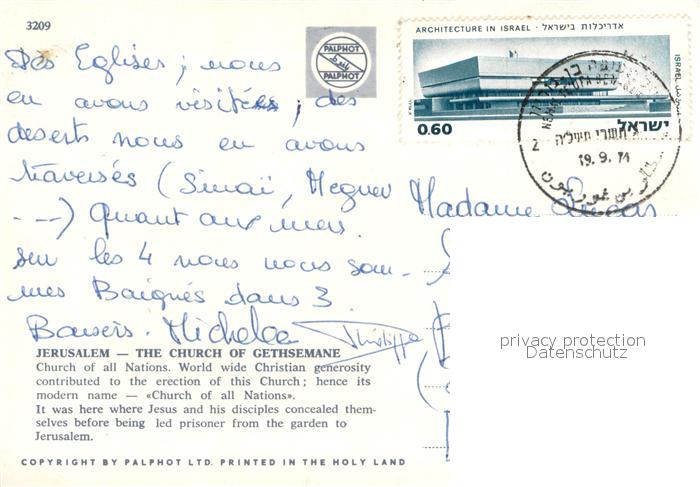 3209
Des Eglises; nous
en avons visités, des
deserts nous en avons
traversés (Sinaï, Meguev
---) Quant aux mers
sur les 4 nous nous som-
mes Baignés dans 3
Baisers. Michelee Philippe
PALPHOT
PALPHOT
ARCHITECTURE IN ISRAEL • אדריכלות בישראל
ISRAEL
0.60
ישראל
2
19.9.74
Madame
JERUSALEM — THE CHURCH OF GETHSEMANE
Church of all Nations. World wide Christian generosity
contributed to the erection of this Church; hence its
modern name — «Church of all Nations».
It was here where Jesus and his disciples concealed them-
selves before being led prisoner from the garden to
Jerusalem.
COPYRIGHT BY PALPHOT LTD. PRINTED IN THE HOLY LAND
privacy protection
Datenschutz